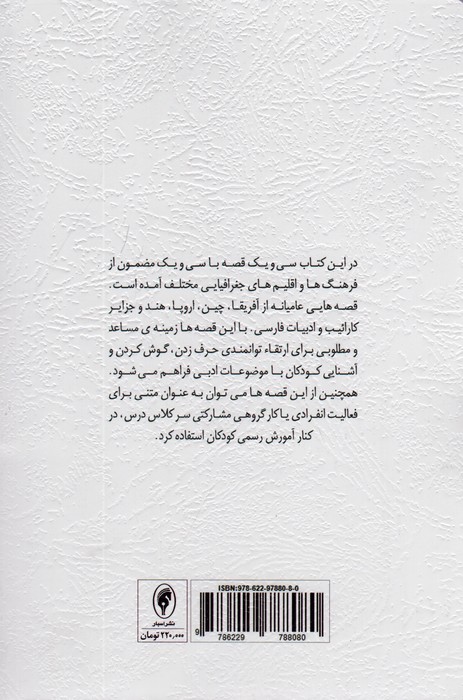 در این کتاب سی و یک قصه با سی و یک مضمون از
فرهنگ ها و اقلیم های جغرافیایی مختلف آمده است.
قصه هایی عامیانه از آفریقا، چین، اروپا، هند و جزایر
کارائیب و ادبیات فارسی. با این قصه ها زمینه ی مساعد
و مطلوبی برای ارتقاء توانمندی حرف زدن، گوش کردن و
آشنایی کودکان با موضوعات ادبی فراهم می شود.
همچنین از این قصه ها می توان به عنوان متنی برای
فعالیت انفرادی یا کار گروهی مشارکتی سر کلاس درس، در
کنار آموزش رسمی کودکان استفاده کرد.
ISBN: 978-622-97880-8-0
9 786229 788080
نشر اسبار
۲۲۰,۰۰۰ تومان